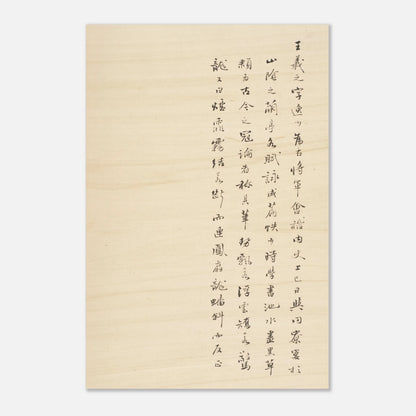 王羲之字逸少為右將軍會稽内史上巳日與同寮宴於
山陰之蘭亭各賦詠成篇帙少時學書池水盡黑草
隸為古今之冠論者稱其筆勢飄若浮雲矯若驚
龍又曰煙霏霧結若斷而連鳳翥龍蟠斜而反正